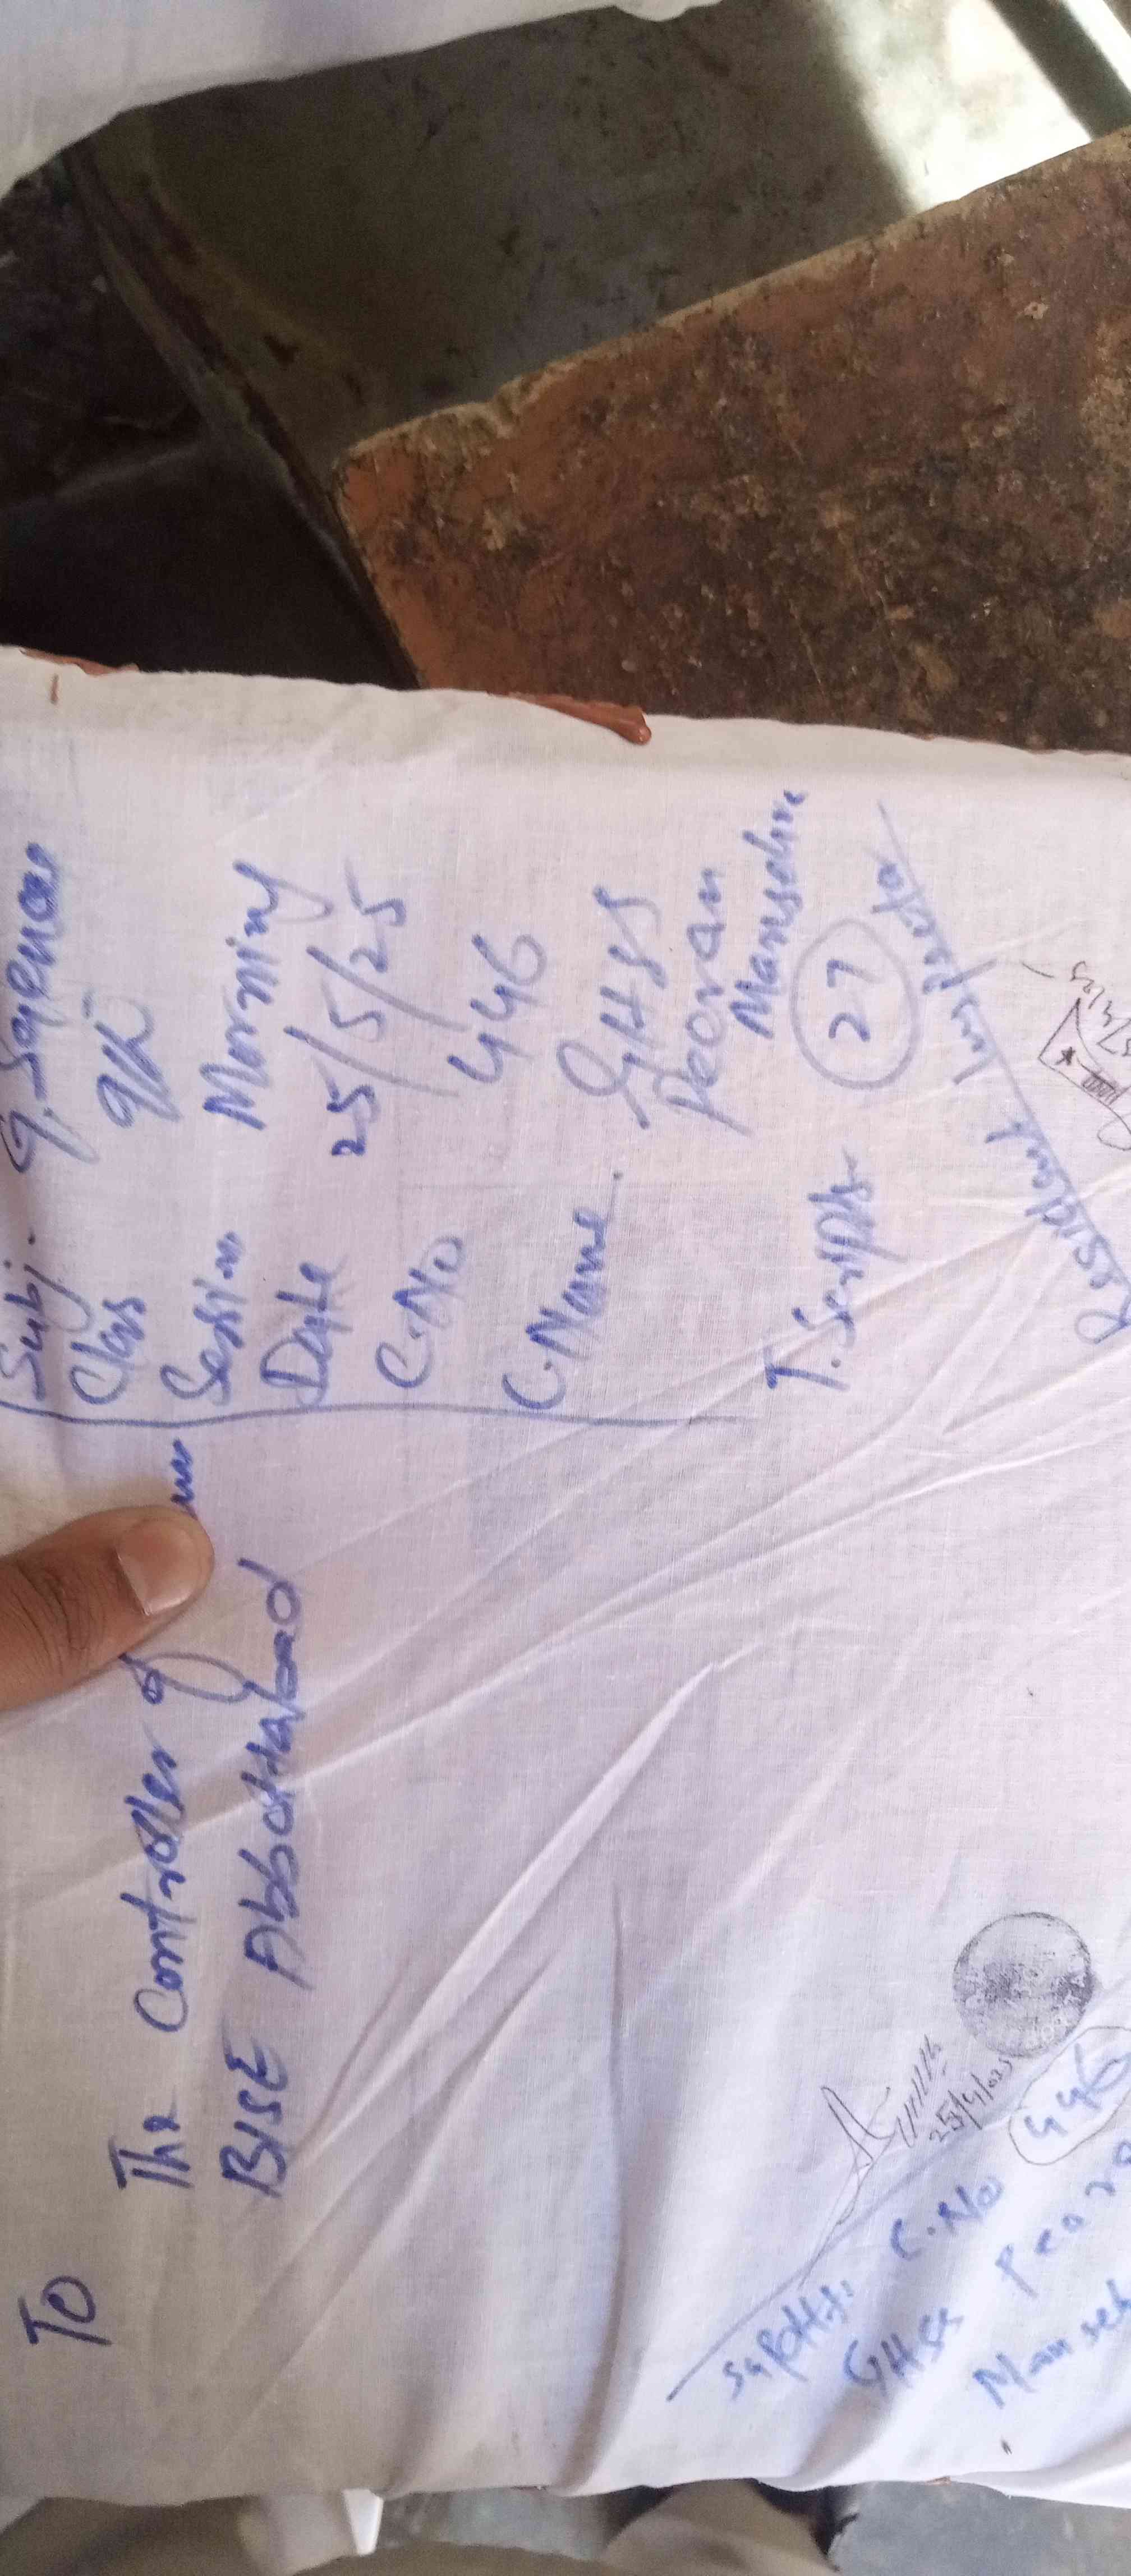 To
The Controller of
BISE Abbottabad
Subj. G. Science
Class 9th
Session Morning
Date 25/5/25
C.No 446
C.Name. GHSS
Peoran
Mansehra
T. Scripts 27
Resident Inspector
25/4/2025
Supdtt: C.No 446
GHSS